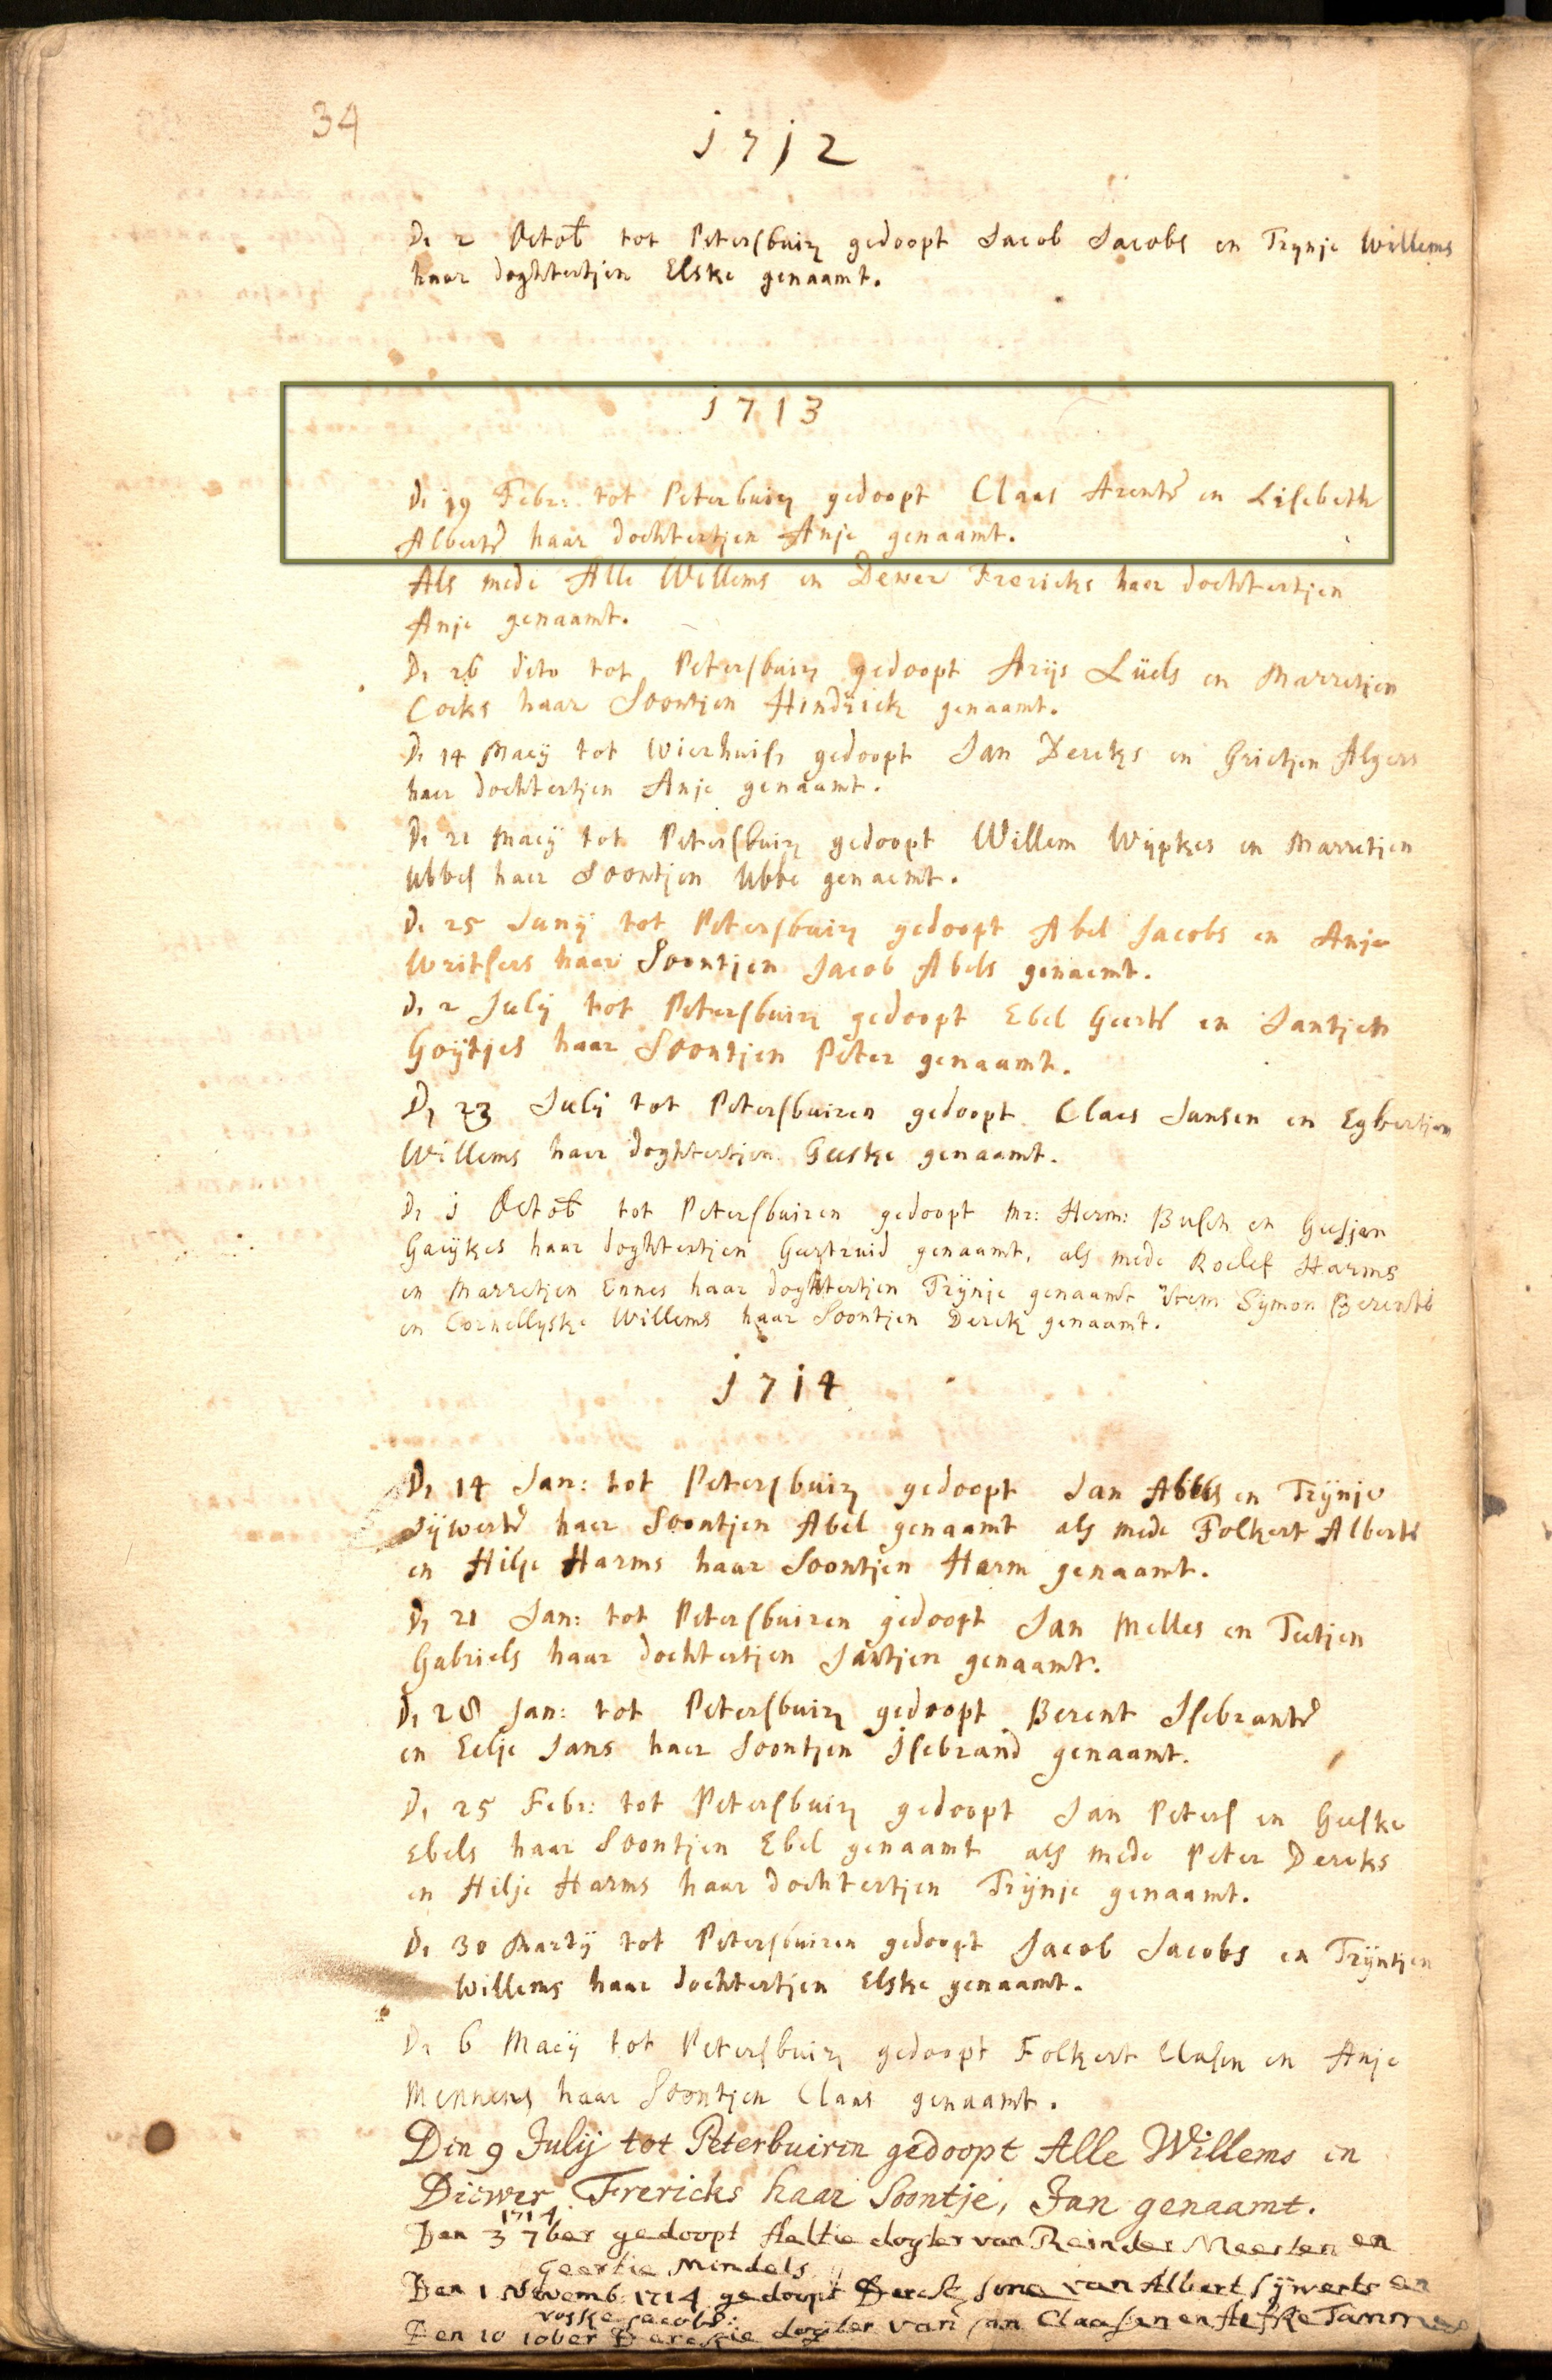 34
1712
De 2 Octob tot Petersbuir gedoopt Jacob Jacobs en Trynje Willems
haar doghtertjen Elske genaamt.
1713
De 19 Febr: tot Peterbuir gedoopt Claas Arents en Lisebeth
Alberts haar dochtertjen Anje genaamt.
Als mede Alle Willems en Dewer Frericks haer dochtertjen
Anje genaamt.
De 26 dito tot Petersbuir gedoopt Arijs Lüels en Marretjen
Cocks haar Soontjen Hindrick genaamt.
De 14 Maeij tot Wierhuis gedoopt Jan Dercks en Grietjen Algers
haer dochtertjen Anje genaamt.
De 21 Maeij tot Petersbuir gedoopt Willem Wijpkes en Marretjen
Ubbes haer Soontjen Ubbe genaemt.
De 25 Junij tot Petersbuir gedoopt Abel Jacobs en Anje
Writsers haer Soontjen Jacob Abels genaemt.
De 2 Julij tot Petersbuir gedoopt Ebel Geerts en Jantjen
Goijtjes haar Soontjen Peter genaamt.
De 23 Julij tot Petersbuiren gedoopt Claes Jansen en Egbertjen
Willems haer doghtertjen Geeske genaamt.
De 1 Octob tot Petersbuiren gedoopt Mr: Herm: Busch en Geesjen
Gaeijkes haar doghtertjen Geertruid genaamt, als mede Roelef Harms
en Marretjen Ennes haar doghtertjen Trijnje genaamt Item Sijmon Berents
en Cornellyske Willems haar Soontjen Derck genaamt.
1714
De 14 Jan: tot Petersbuir gedoopt Jan Abels en Trijnje
Sijwerts haer Soontjen Abel genaamt als mede Folkert Alberts
en Hilje Harms haar Soontjen Harm genaamt.
De 21 Jan: tot Petersbuiren gedoopt Jan Melles en Teetjen
Gabriels haar dochtertjen Jantjen genaamt.
De 28 Jan: tot Petersbuir gedoopt Berent Isebrants
en Eelje Jans haer Soontjen Isebrand genaamt.
De 25 Febr: tot Petersbuir gedoopt Jan Peters en Geeske
Ebels haar Soontjen Ebel genaamt als mede Peter Dercks
en Hilje Harms haar dochtertjen Trijnje genaamt.
De 30 Martij tot Petersbuiren gedoopt Jacob Jacobs en Trijntjen
Willems haar dochtertjen Elske genaamt.
De 6 Maeij tot Petersbuir gedoopt Folkert Clasen en Anje
Mennens haar Soontjen Claas genaamt.
Den 9 Julij tot Peterbuiren gedoopt Alle Willems en
Diewer Frericks haar Soontje, Jan genaamt.
1714
Den 3 7ber gedoopt Aeltie dogter van Reinder Meerten en
Geertie Mindels
Den 1 Novemb 1714 gedoopt Derck sone van Albert Sijwerts en
voske Jacobs:
Den 10 10ber Derckie dogter van Jan Claasen en Aefke Tammes